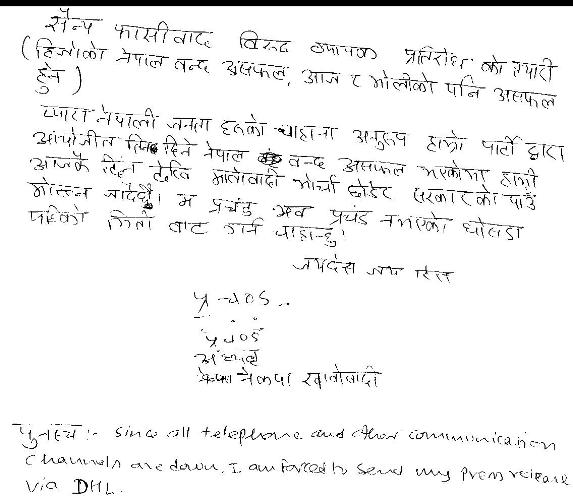 सैन्य फासीवाद विरुद्ध व्यापक प्रतिरोध को तयारी
(हिजोको नेपाल बन्द असफल, आज र भोलीको पनि असफल
हुने)
प्यारा नेपाली जनता हरुको चाहाना अनुरुप हाम्रो पार्टी द्वारा
आयोजीत तिन दिने नेपाल बन्द असफल भएकोमा हामी
आजकै दिन देखि माओवादी मोर्चा छोडेर सरकारको पाउ
मोल्न जाँदैछौ। म प्रचण्ड अब प्रचंड नभएको घोसडा
पार्टीको मिती बाट गर्न चाहान्छु।
जयदेश जय
प्रचण्ड
प्रचण्ड
अध्यक्ष
नेकपा खाओवादी
पुनश्च :- Since all telephone and other communication
channels are down, I am forced to send my press release
via DHL.